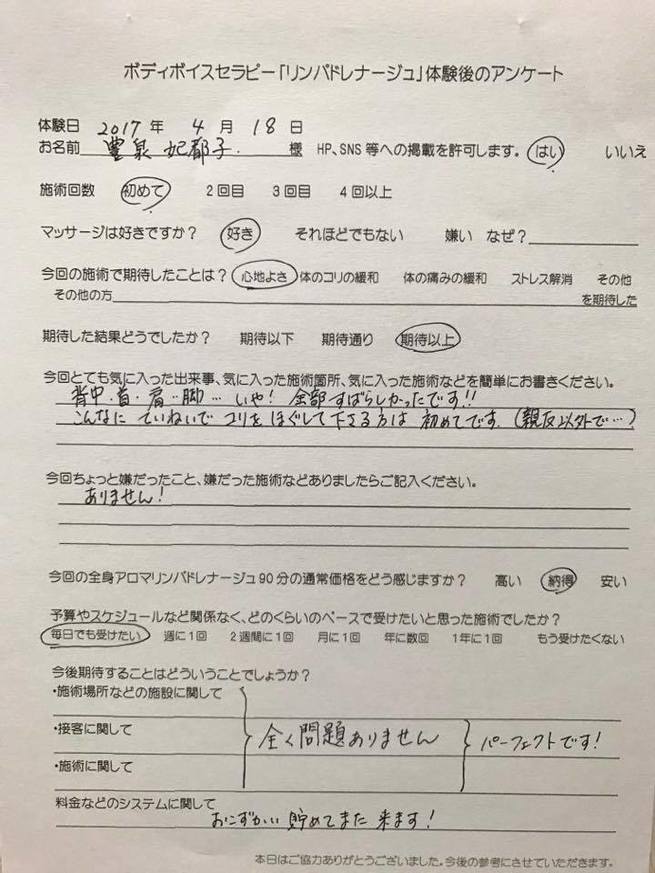 ボディボイスセラピー「リンパドレナージュ」体験後のアンケート
体験日 2017 年 4 月 18 日
お名前 豊泉 妃都子 様 HP、SNS 等への掲載を許可します。 はい いいえ
施術回数 初めて 2回目 3回目 4回以上
マッサージは好きですか？ 好き それほどでもない 嫌い なぜ？
今回の施術で期待したことは？ 心地よさ 体のコリの緩和 体の痛みの緩和 ストレス解消 その他
その他の方 を期待した
期待した結果どうでしたか？ 期待以下 期待通り 期待以上
今回とても気に入った出来事、気に入った施術箇所、気に入った施術などを簡単にお書きください。
背中・首・肩・脚… いや！ 全部すばらしかったです!!
こんなに ていねいで コリを ほぐして下さる方は 初めてです。(親友以外で…)
今回ちょっと嫌だったこと、嫌だった施術などありましたらご記入ください。
ありません！
今回の全身アロマリンパドレナージュ90分の通常価格をどう感じますか？ 高い 納得 安い
予算やスケジュールなど関係なく、どのくらいのペースで受けたいと思った施術でしたか？
毎日でも受けたい 週に1回 2週間に1回 月に1回 年に数回 1年に1回 もう受けたくない
今後期待することはどういうことでしょうか？
・施術場所などの施設に関して
・接客に関して 全く問題ありません パーフェクトです！
・施術に関して
料金などのシステムに関して
おこずかい 貯めてまた 来ます！
本日はご協力ありがとうございました。今後の参考にさせていただきます。